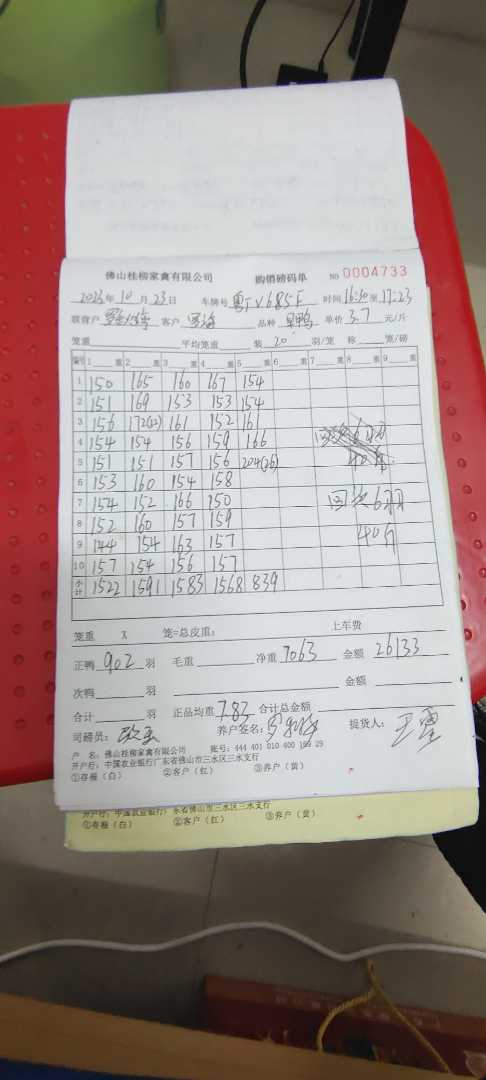 佛山桂柳家禽有限公司 购销磅码单 NO 0004733
2023年10月23日 车牌号 粤TV685F 时间 16:10至17:23
联营户 客户 罗海 品种 单价 3.7 元/斤
笼重 平均笼重 装 20 羽/笼 称 笼/磅
编号 1 重 2 重 3 重 4 重 5 重 6 重 7 重 8 重 9 重
1 150 165 160 167 154
2 151 169 153 153 154
3 156 172(22) 161 152 161
4 154 154 156 159 166
5 151 151 157 156 204(26)
6 153 160 154 158
7 154 152 166 150 回 6羽
8 152 160 157 159
9 144 154 163 157 40斤
10 157 154 156 157
小计 1522 1591 1583 1568 839
笼重 X 笼=总皮重: 上车费
正鸭 902 羽 毛重 净重 7063 金额 26133
次鸭 羽 金额
合计 羽 正品均重 7.83 合计总金额
司磅员: 养户签名: 提货人: 王雷
户 名: 佛山桂柳家禽有限公司 账号: 444 401 010 400 169 29
开户行: 中国农业银行广东省佛山市三水区三水支行
①存根(白) ②客户(红) ③养户(黄)
开户行: 中国农业银行广东省佛山市三水区三水支行
①存根(白) ②客户(红) ③养户(黄)